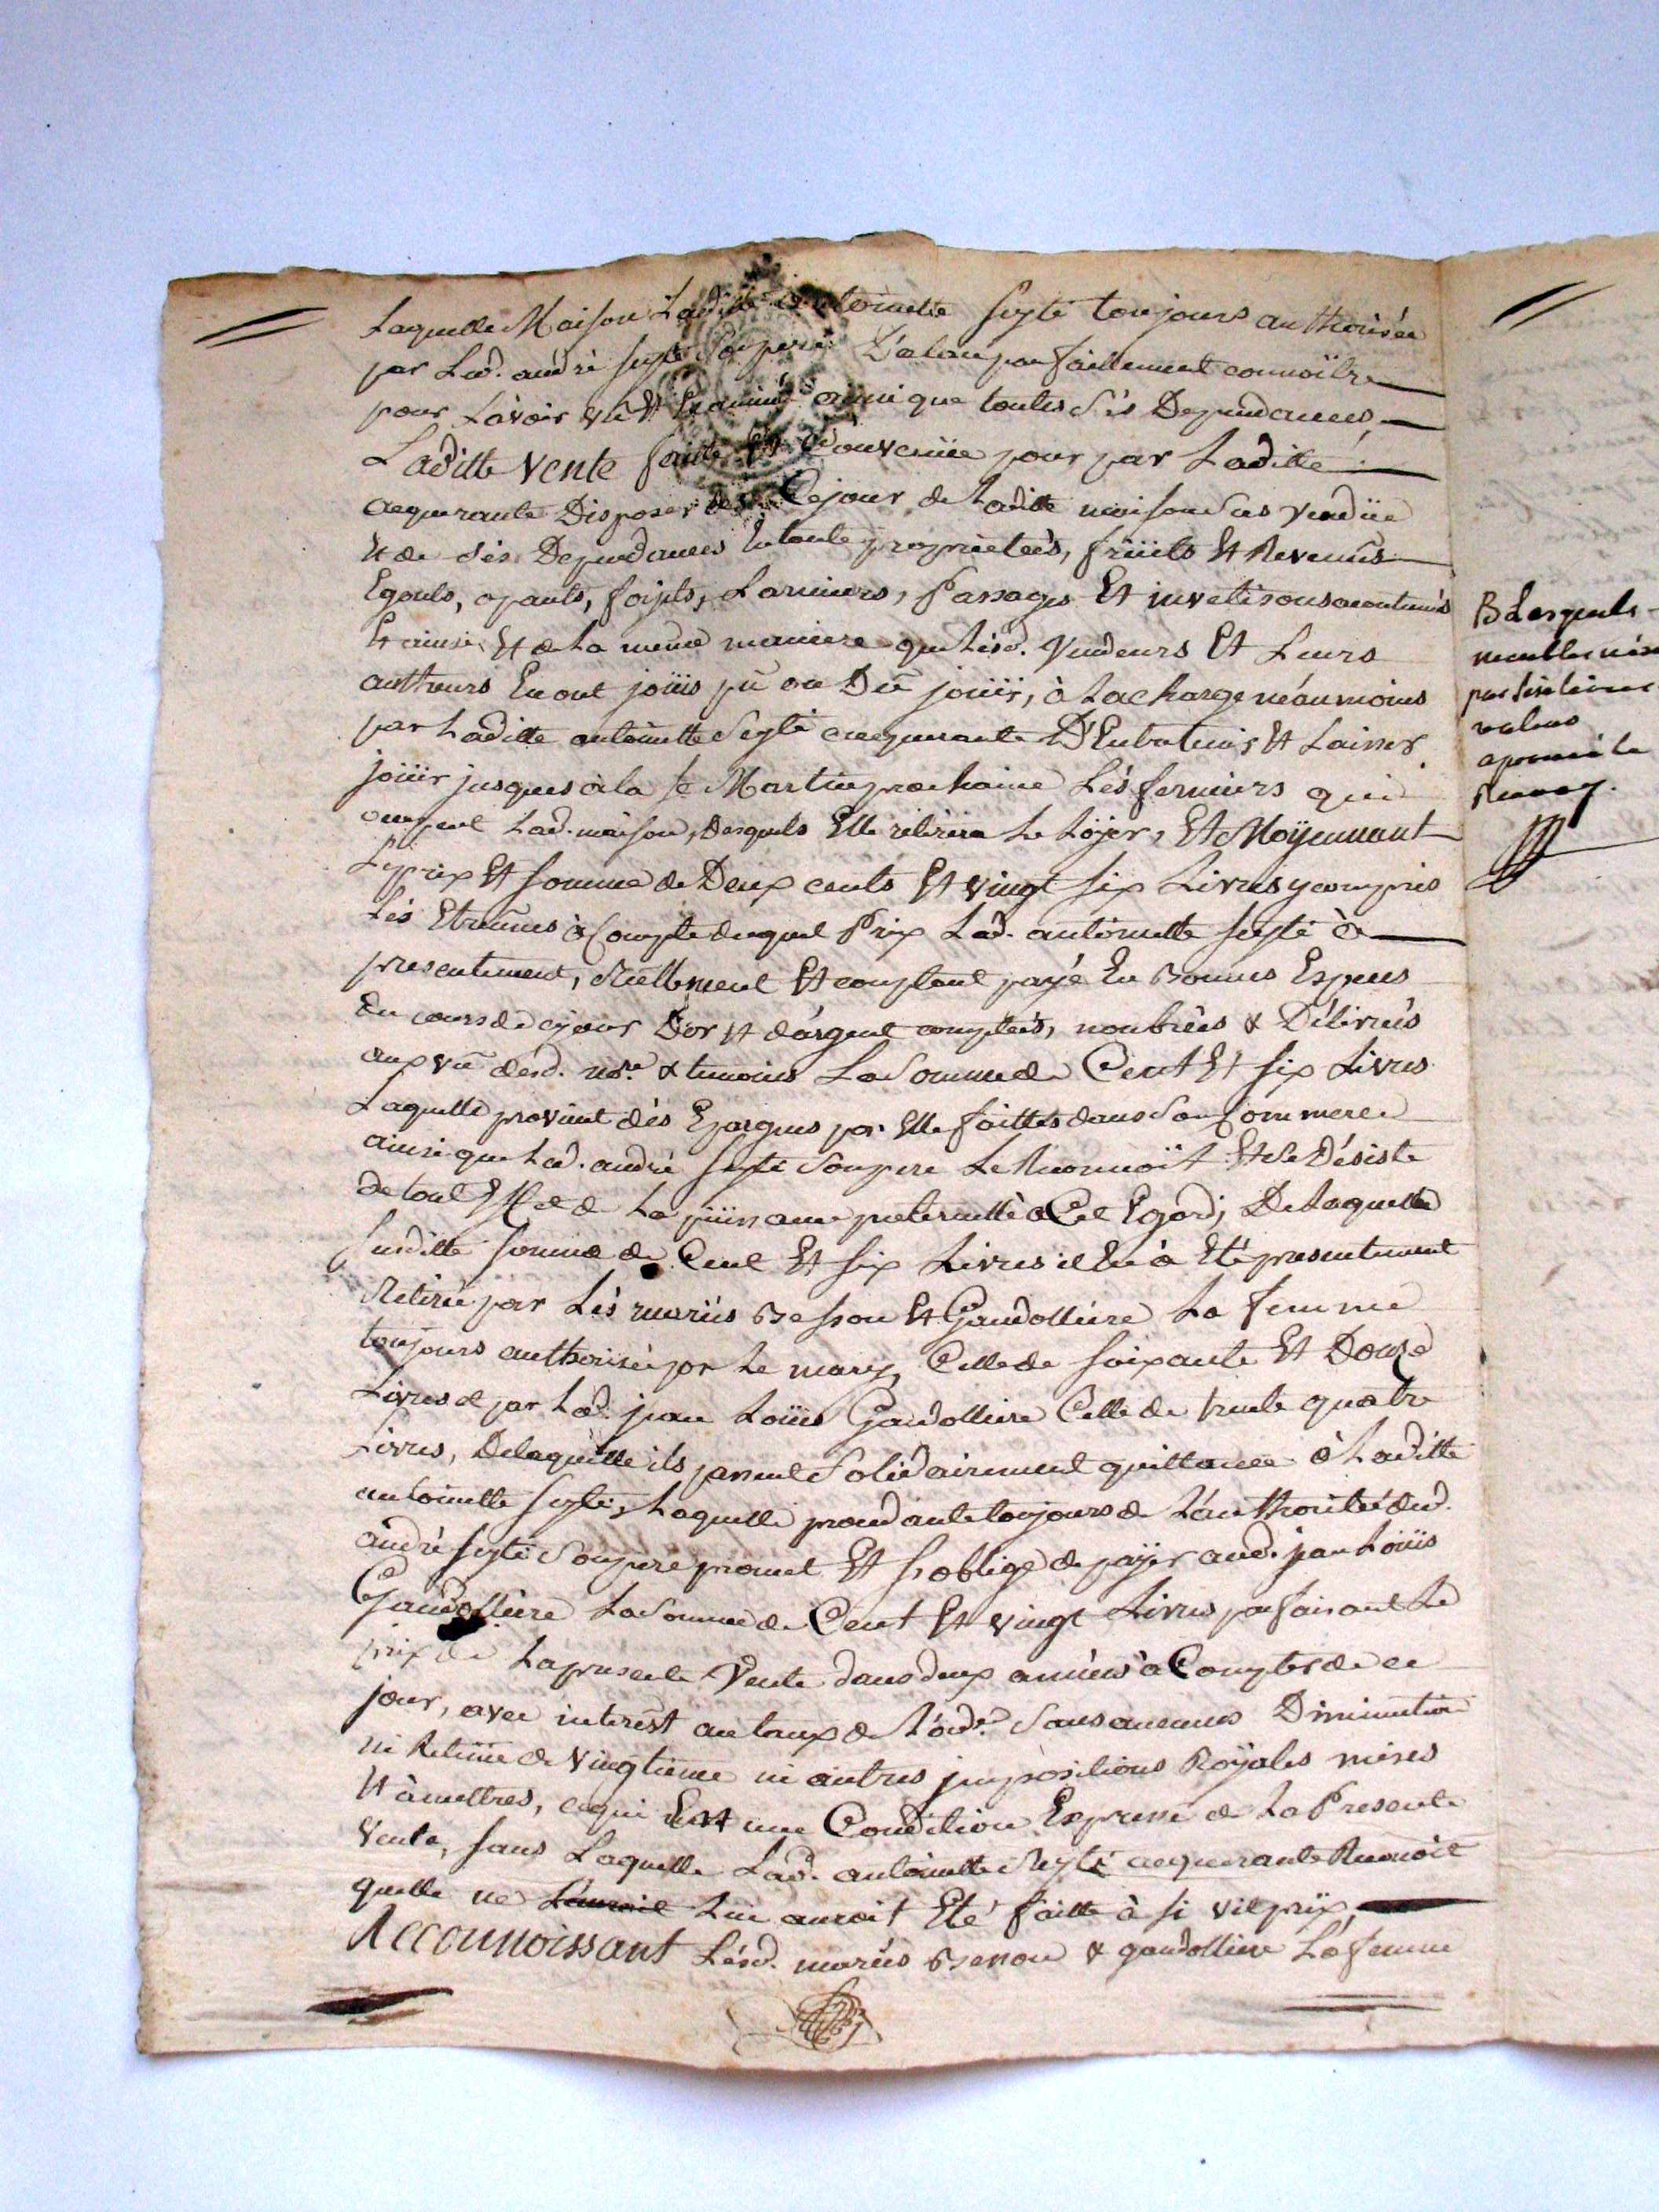 Laquelle Maison Laditte antoinette seyte toujours authorisée
par Led. andré seyte Son pere Déclare parfaittement connoitre
pour L'avoir vu Et Examiné ainsi que toutes Sés Dependances,
Laditte vente faitte Et Convenüe pour par Laditte
acquerante Disposer dés Cejour de Laditte maison Sus vendüe
Et de Sés Dependances En toute proprietés, früits Et Revenus
Egouts, Larmiers, Passages Et accoutumés
Et ainsi Et de La même maniere que Lésd. Vendeurs Et Leurs
autheurs En ont joüis pû ou Dû joüir, à La charge néanmoins
par Laditte antoinette Seyte acquerante D'Entretenir Et Laisser
joüir jusques à la St Martin prochaine Lés fermiers qui
occupent Lad. maison, desquels Elle retirera Le Loÿer, Et Moÿennant
Le prix Et somme de Deux cents Et vingt six Livres y compris
Lés Etrennes à Compte duquel Prix Lad. antoinette seyte à
presentement, réellement Et comptant payé En Bonnes Especes
du cours de cejour D'or Et d'argent comptées, nonbrées & Délivrées
aux vu desd. nore. & temoins La Somme de Cent Et six Livres
Laquelle provient dés Epargnes par Elle faittes dans Son Commerce
ainsi que Led. andré seyte Son pere Le Reconnoît Et Se Désiste
de tout Effet de La püissance paternelle à Cet Egard; De Laquelle
susditte somme de Cent Et six Livres il En à Eté presentement
Retirée par Lés mariés Besson Et Gaudolliere La femme
toujours authorisée par Le mary, Celle de soixante Et Douze
Livres & par Led. jean Loüis Gaudolliere Celle de trente quatre
Livres, De laquelle ils passent Solidairement quittance à Laditte
antoinette seyte, Laquelle procedante toujours de L'authorité dud.
andré seyte Son pere promet Et s'oblige de païer aud. jean Loüis
Gaudolliere La Somme de Cent Et vingt Livres parfaisant Le
prix de La presente Vente dans deux années à Compter de ce
jour, avec interest au taux de L'orde. Sans aucunes Diminution
ni Retenüe de Vingtieme ni autres jmpositions Royales mises
Et à mettres, cequi Est une Condition Expresse de La Presente
Vente, sans Laquelle Lad. antoinette Seyte acquerante Reconoit
quelle ne Lui auroit Eté faitte à si vil prix,
Reconnoissant Lésd. mariés Besson & gaudolliere La femme
B Lesquels
meubles
valeur